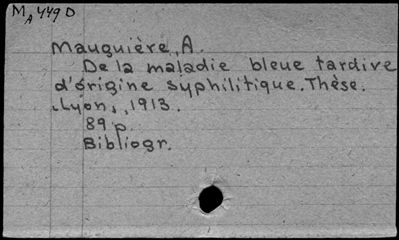 MA 449 D
Mauguière, A.
De la maladie bleue tardive
d'origine syphilitique. Thèse.
Lyon, 1913.
89 p.
Bibliogr.